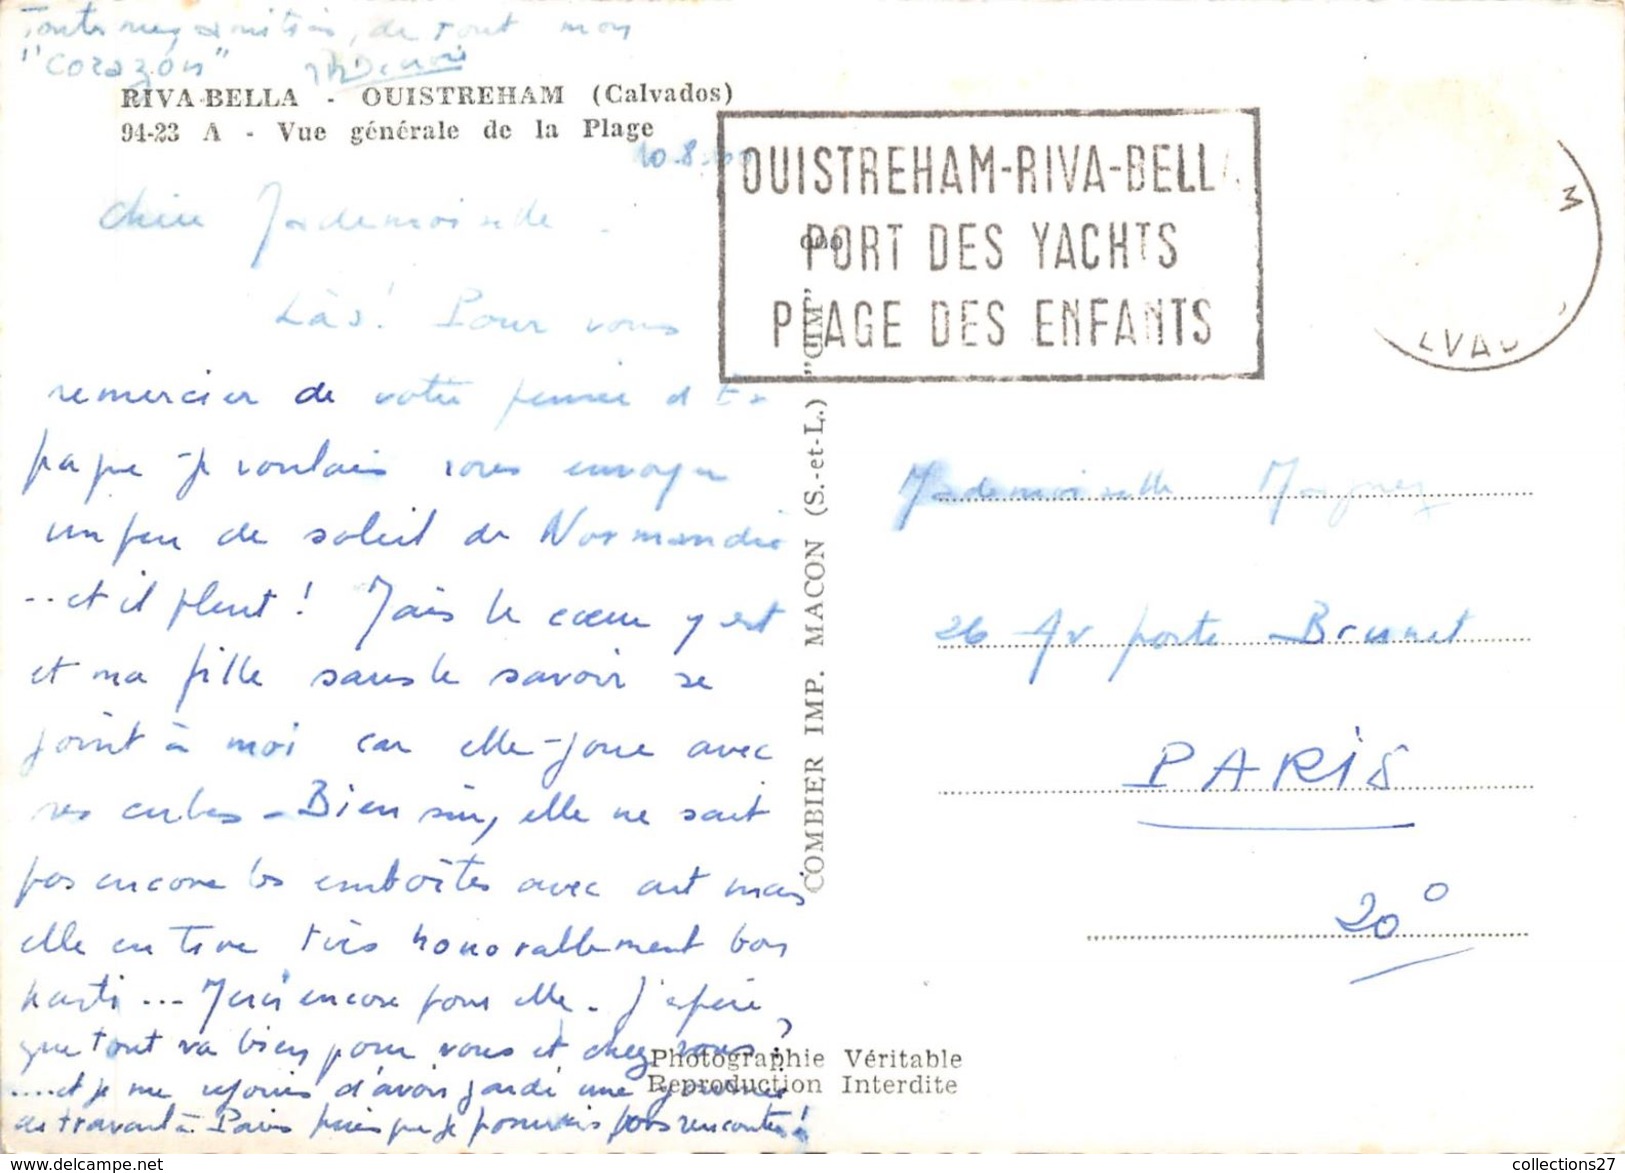 Toutes mes amitiés, de tout mon
"Corazón"
RIVA-BELLA - OUISTREHAM (Calvados)
94-23 A - Vue générale de la Plage
10-8-
Chère Mademoiselle.
Làs! Pour vous
remercier de votre pensée d'
pape je voulais vous envoyer
un peu de soleil de Normandie
..et il pleut! Mais le cœur y est
et ma fille sans le savoir se
joint à moi car elle joue avec
ses cubes - Bien sûr, elle ne sait
pas encore les emboîter avec art mais
elle en tire très honorablement bon
parti... Merci encore pour elle. J'espère
que tout va bien pour vous et chez vous?
....et je me réjouis d'avoir gardé une journée
de travail à Paris puisque je pourrais vous rencontrer!
OUISTREHAM-RIVA-BELLA
PORT DES YACHTS
PLAGE DES ENFANTS
M
LVAD
COMBIER IMP. MACON (S.-et-L.) "CIM"
Mademoiselle
26 Av porte Brunet
PARIS
20°
Photographie Véritable
Reproduction Interdite
collections27